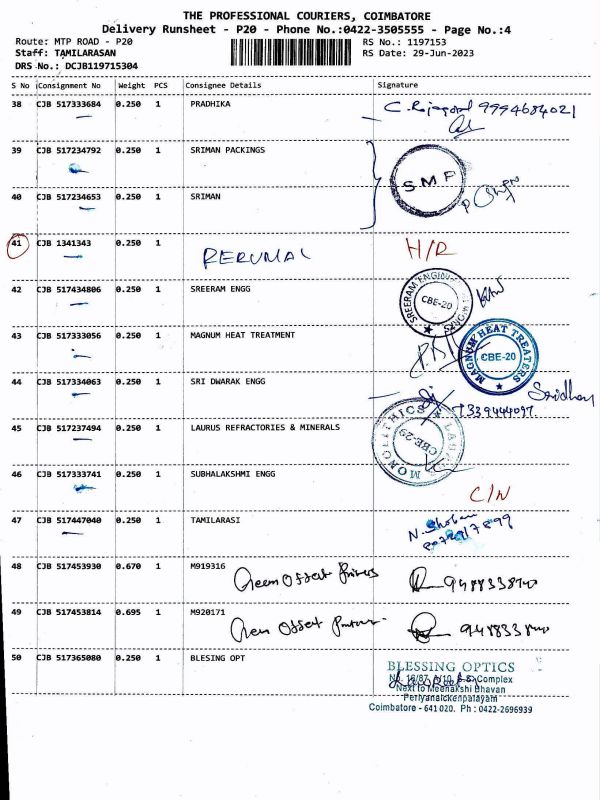 THE PROFESSIONAL COURIERS, COIMBATORE
Delivery Runsheet - P20 - Phone No.:0422-3505555 - Page No.:4
Route: MTP ROAD - P20 RS No.: 1197153
Staff: TAMILARASAN RS Date: 29-Jun-2023
DRS No.: DCJB119715304
S No Consignment No Weight PCS Consignee Details Signature
38 CJB 517333684 0.250 1 PRADHIKA C. Rajagopal 9994684021
39 CJB 517234792 0.250 1 SRIMAN PACKINGS
SMF
40 CJB 517234653 0.250 1 SRIMAN
41 CJB 1341343 0.250 1 PERUMAL H/R
42 CJB 517434806 0.250 1 SREERAM ENGG
SREERAM ENGINE CBE-20
43 CJB 517333056 0.250 1 MAGNUM HEAT TREATMENT
MAGNUM HEAT TREATERS CBE-20
44 CJB 517334063 0.250 1 SRI DWARAK ENGG
Sridhar
MONOLITHICS CBE-29
45 CJB 517237494 0.250 1 LAURUS REFRACTORIES & MINERALS
46 CJB 517333741 0.250 1 SUBHALAKSHMI ENGG
C/N
47 CJB 517447040 0.250 1 TAMILARASI
48 CJB 517453930 0.670 1 M919316
49 CJB 517453814 0.695 1 M920171
50 CJB 517365080 0.250 1 BLESING OPT
BLESSING OPTICS
Complex
Next to Meenakshi Bhavan
Periyanaickenpalayam
Coimbatore - 641 020. Ph : 0422-2696939